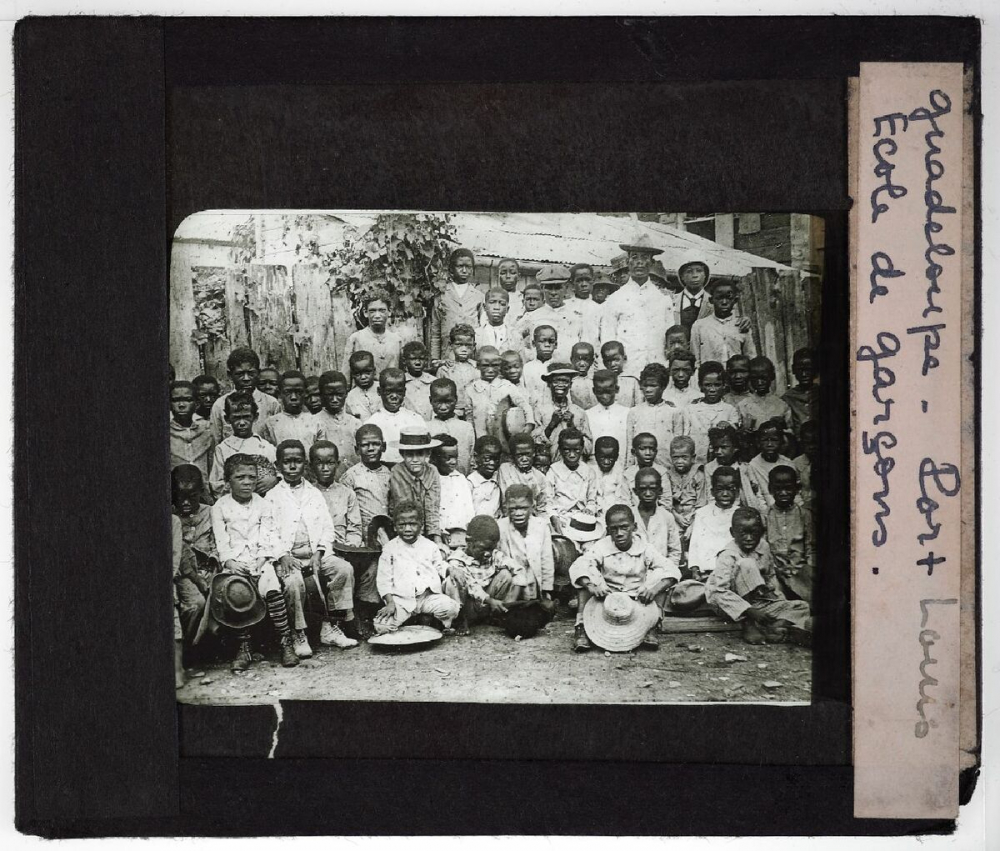 guadeloupe - Port Louis
Ecole de garçons.